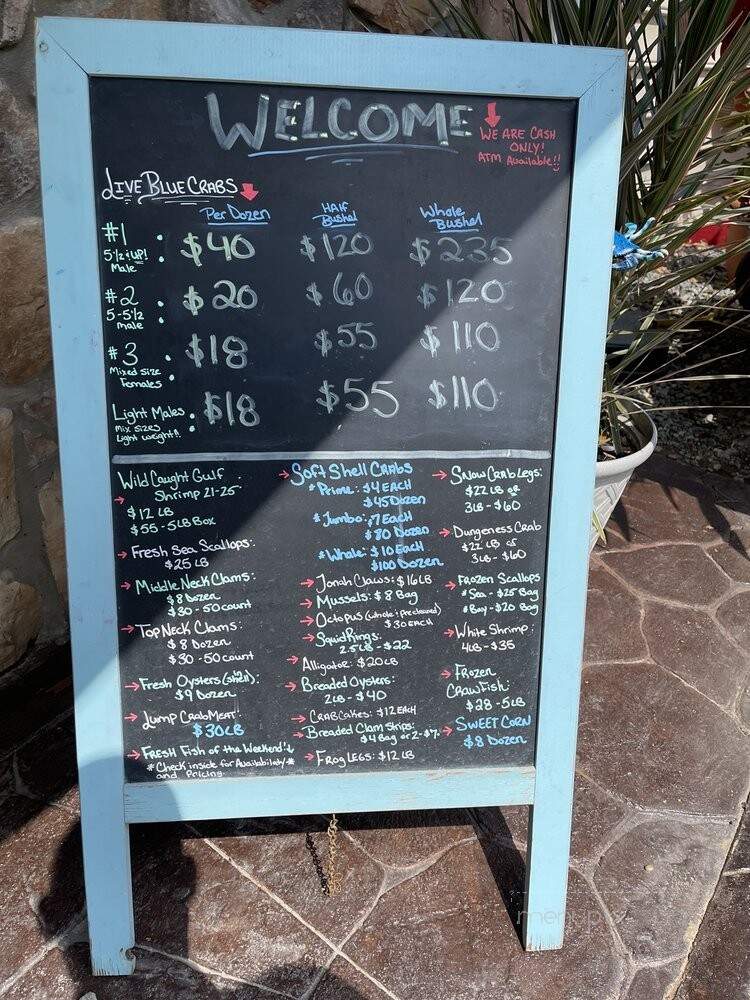 WELCOME
WE ARE CASH
ONLY!
ATM Available!!
LIVE BLUE CRABS
Per Dozen
HALF
Bushel
Whole
Bushel
#1 : $40 $120 $235
5½ & UP!
Male
#2 : $20 $60 $120
5-5½
male
#3 : $18 $55 $110
Mixed size
Females
Light Males : $18 $55 $110
mix sizes
light weight!!
Wild Caught Gulf :
Shrimp 21-25
$12 LB
$55 - 5LB Box
Fresh Sea Scallops:
$25 LB
Middle Neck Clams:
$8 Dozen
$30 - 50 count
Top Neck Clams:
$8 Dozen
$30 - 50 count
Fresh Oysters (shell):
$9 Dozen
Lump Crab Meat
$30 LB
FRESH Fish of the Weekend!
*Check inside for Availability*
and Pricing
Soft Shell CRABS
*Prime: $4 EACH
$45 Dozen
*Jumbo: $7 Each
$80 Dozen
*Whale: $10 EACH
$100 Dozen
Jonah Claws: $16 LB
Mussels: $8 Bag
Octopus (whole & precleaned)
$30 EACH
Squid Rings:
2.5LB - $22
Alligator: $20 LB
Breaded Oysters:
2LB - $40
CRABCakes: $12 EACH
Breaded Clam Strips:
$4 Bag or 2-$7
Frog LEGS: $12 LB
SNOW CRAB Legs:
$22 LB or
3LB - $60
Dungeness Crab
$22 LB or
3LB - $60
FROZEN Scallops
*Sea - $25 Bag
*Bay - $20 Bag
White Shrimp:
4LB - $35
FROZEN
CRAWFISH:
$28 - 5LB
SWEET CORN
$8 Dozen
menupix